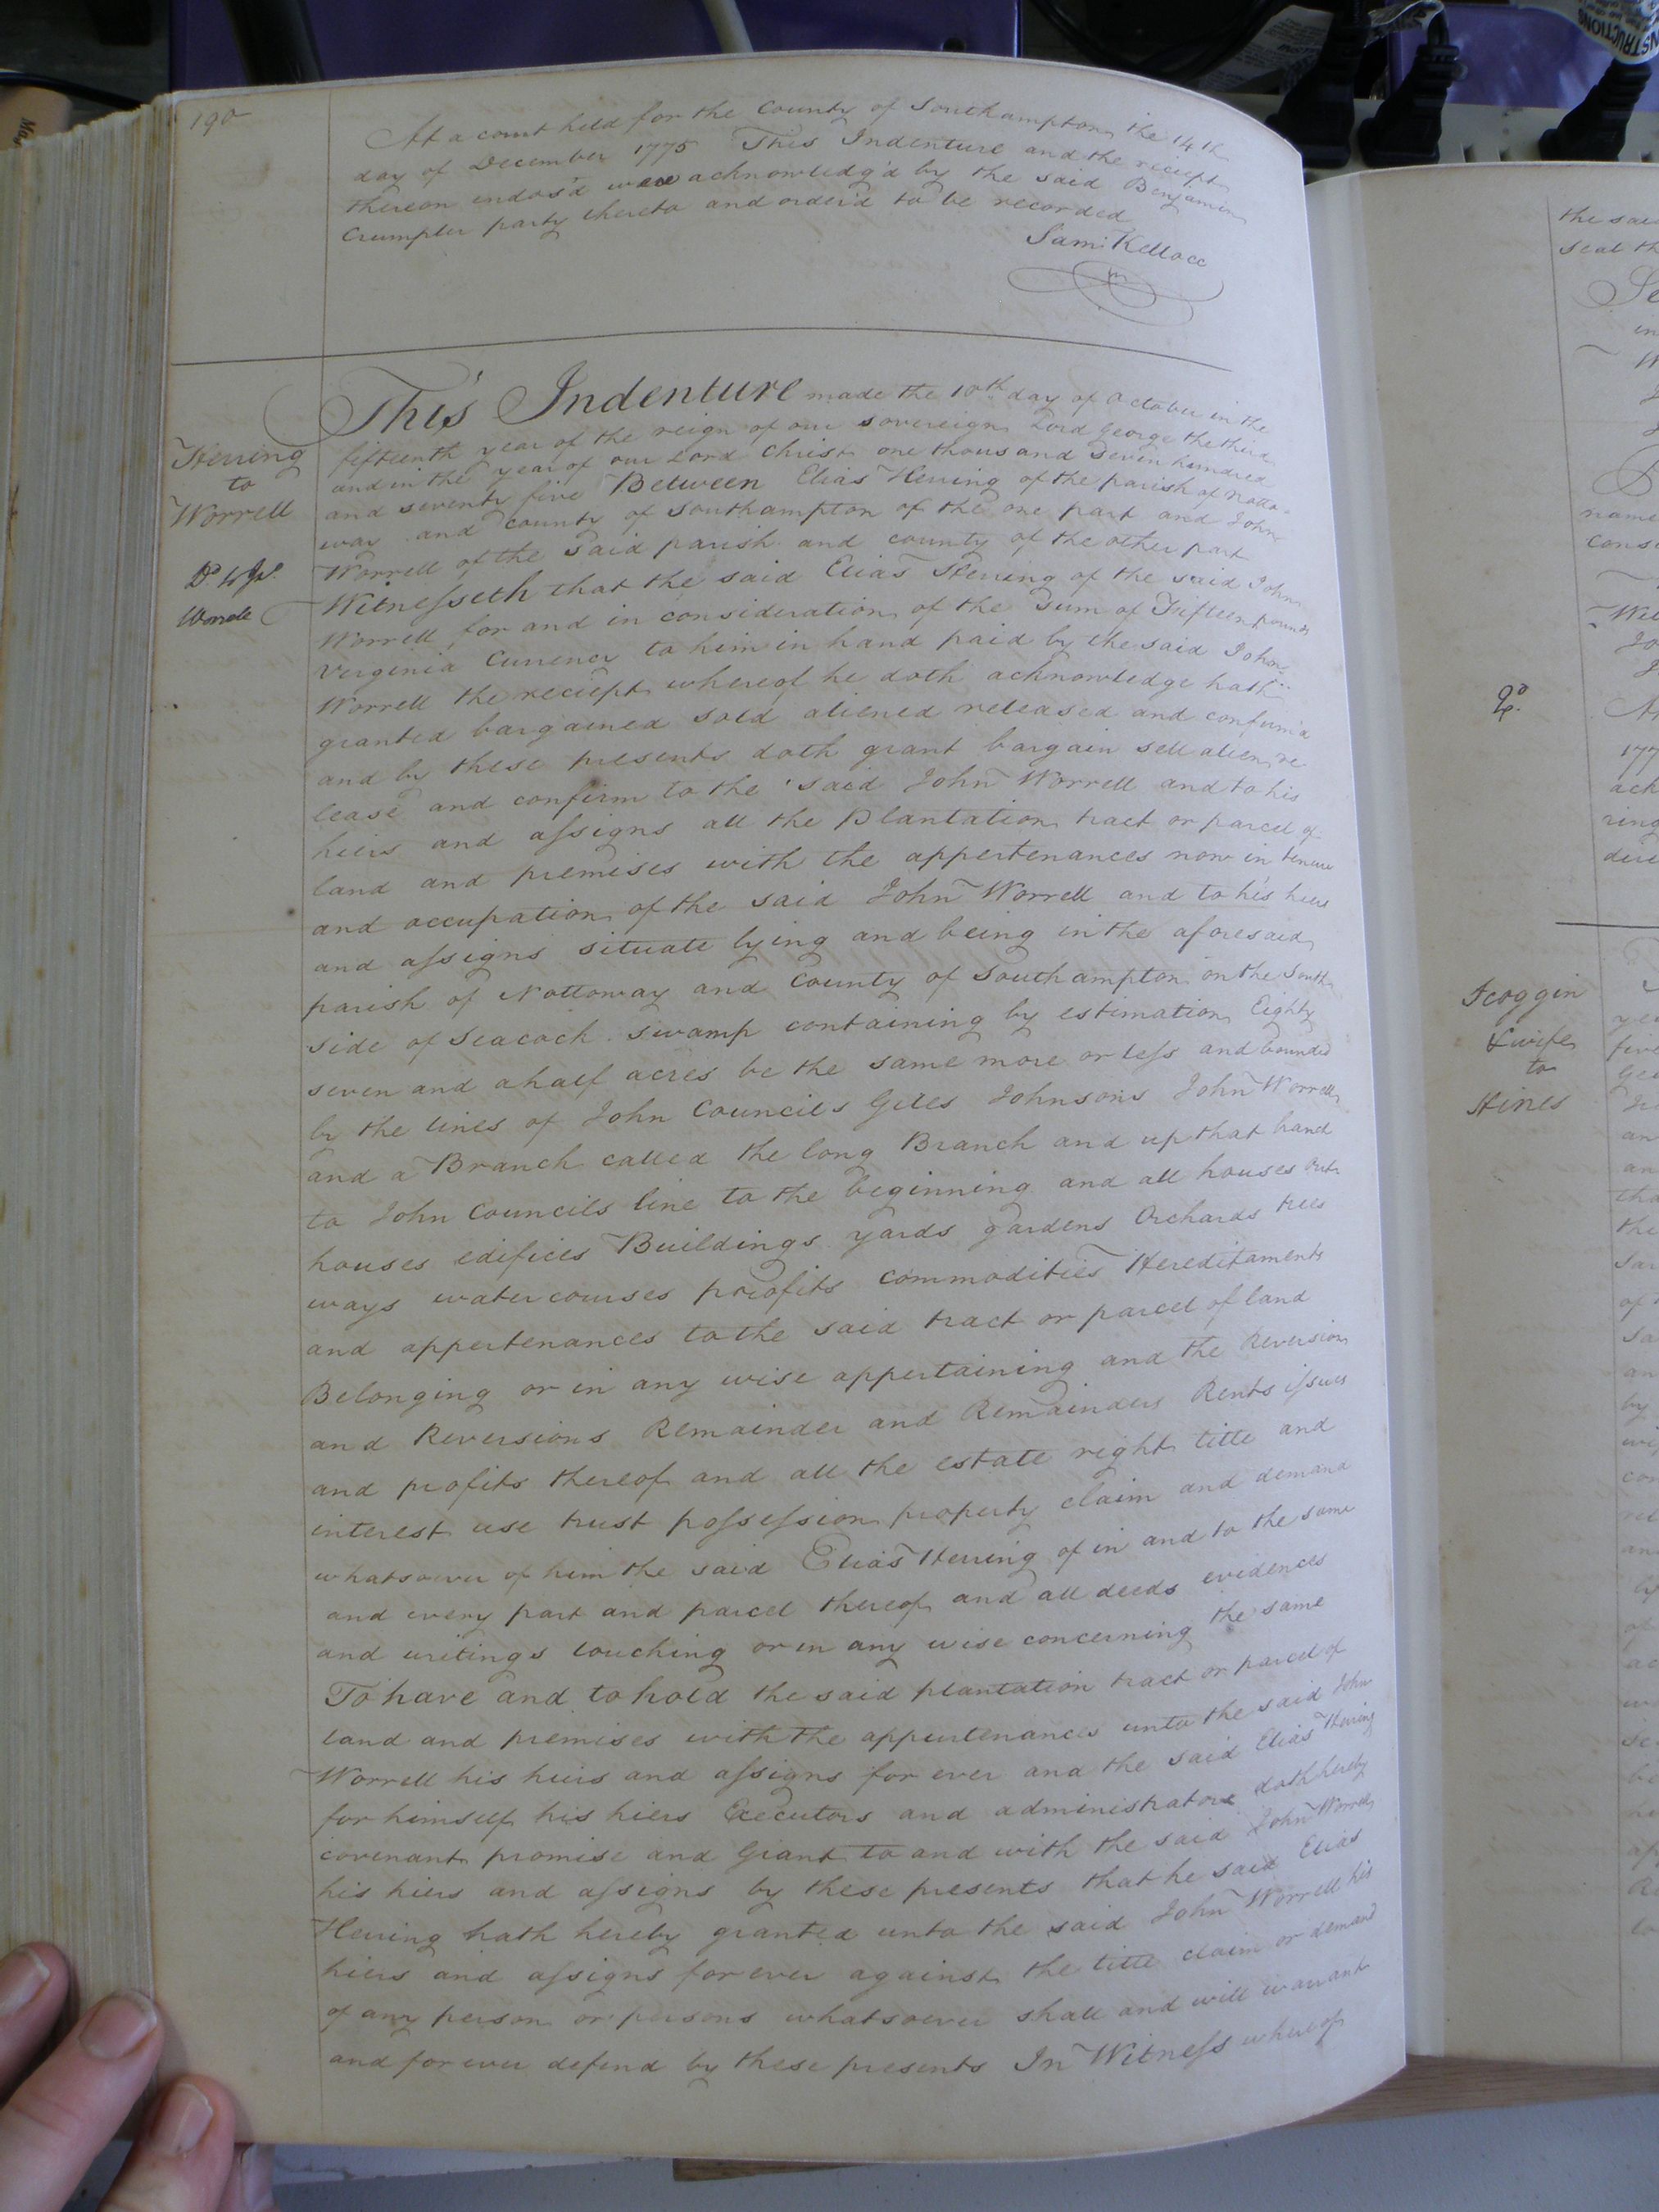 190
At a court held for the County of Southampton the 14th
day of December 1775 This Indenture and the reciept
thereon endos'd were acknowledg'd by the said Benjamin
Crumpler party thereto and order'd to be recorded
Sam: Kello CC
Herring
to
Worrell
This Indenture made the 10th day of October in the
fifteenth year of the reign of our sovereign Lord George the third
and in the year of our Lord Christ one thousand seven hundred
and seventy five Between Elias Herring of the parish of Notto-
way and County of Southampton of the one part and John
Worrell of the said parish and county of the other part
Witnesseth that the said Elias Herring of the said John
Worrell for and in consideration of the sum of Fifteen pounds
Virginia Currency to him in hand paid by the said John
Worrell the reciept whereof he doth acknowledge hath
granted bargained sold aliened released and confirm'd
and by these presents doth grant bargain sell alien re
lease and confirm to the said John Worrell and to his
hiers and assigns all the Plantation tract or parcel of
land and premises with the appertenances now in tenure
and occupation of the said John Worrell and to his hiers
and assigns situate lying and being in the aforesaid
parish of Nottoway and County of Southampton on the South
side of Seacock swamp containing by estimation Eighty
seven and a half acres be the same more or less and bounded
by the lines of John Councils Giles Johnsons John Worrells
and a Branch called the long Branch and up that hand
to John Councils line to the beginning and all houses out
houses edifices Buildings yards gardens Orchards trees
ways watercourses profits commodities Hereditaments
and appertenances to the said tract or parcel of land
Belonging or in any wise appertaining and the Reversion
and Reversions Remainder and Remainders Rents issues
and profits thereof and all the estate right title and
interest use trust possession property claim and demand
whatsoever of him the said Elias Herring of in and to the same
and every part and parcel thereof and all deeds evidences
and writings touching or in any wise concerning the same
To have and to hold the said plantation tract or parcel of
land and premises with the appurtenances unto the said John
Worrell his heirs and assigns for ever and the said Elias Herring
for himself his hiers Executors and administrators doth hereby
covenant promise and Grant to and with the said John Worrell
his hiers and assigns by these presents that he said Elias
Herring hath hereby granted unto the said John Worrell his
hiers and assigns for ever against the title claim or demand
of any person or persons whatsoever shall and will warrant
and for ever defend by these presents In Witness whereof
the said
seal th
name
Scoggin
& wife
to
Hines